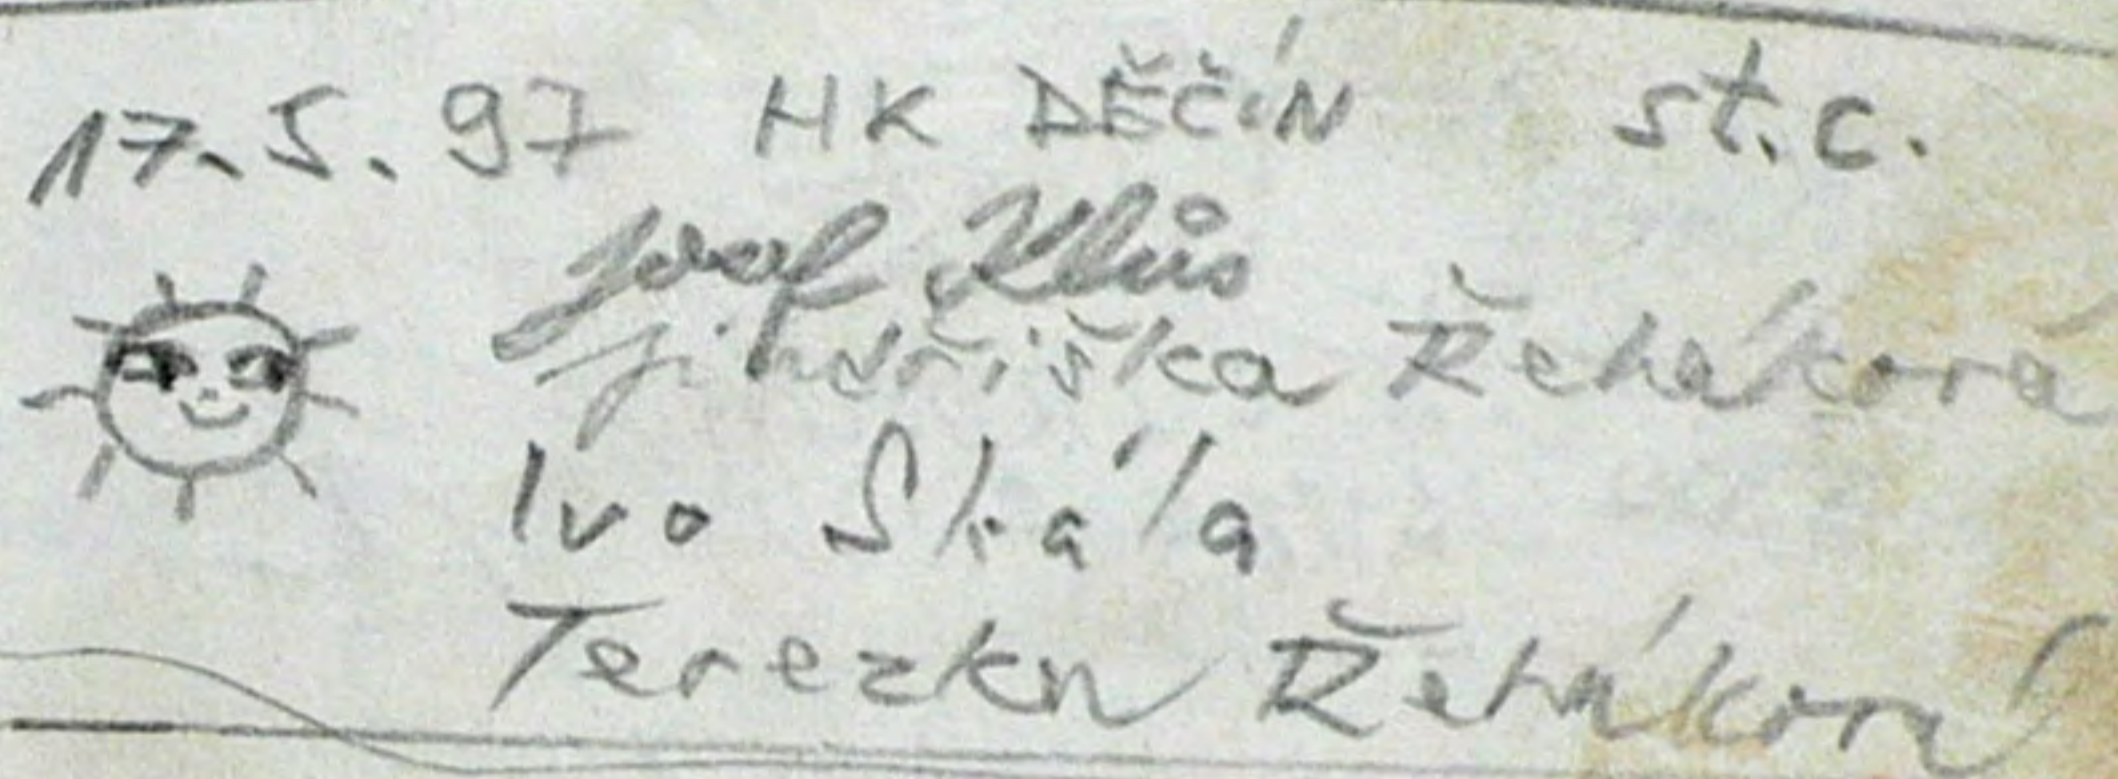 17.5.97 HK DĚČÍN st.c.
Josef Klůs
Jindřiška Řeháková
Ivo Skála
Terezka Řeháková